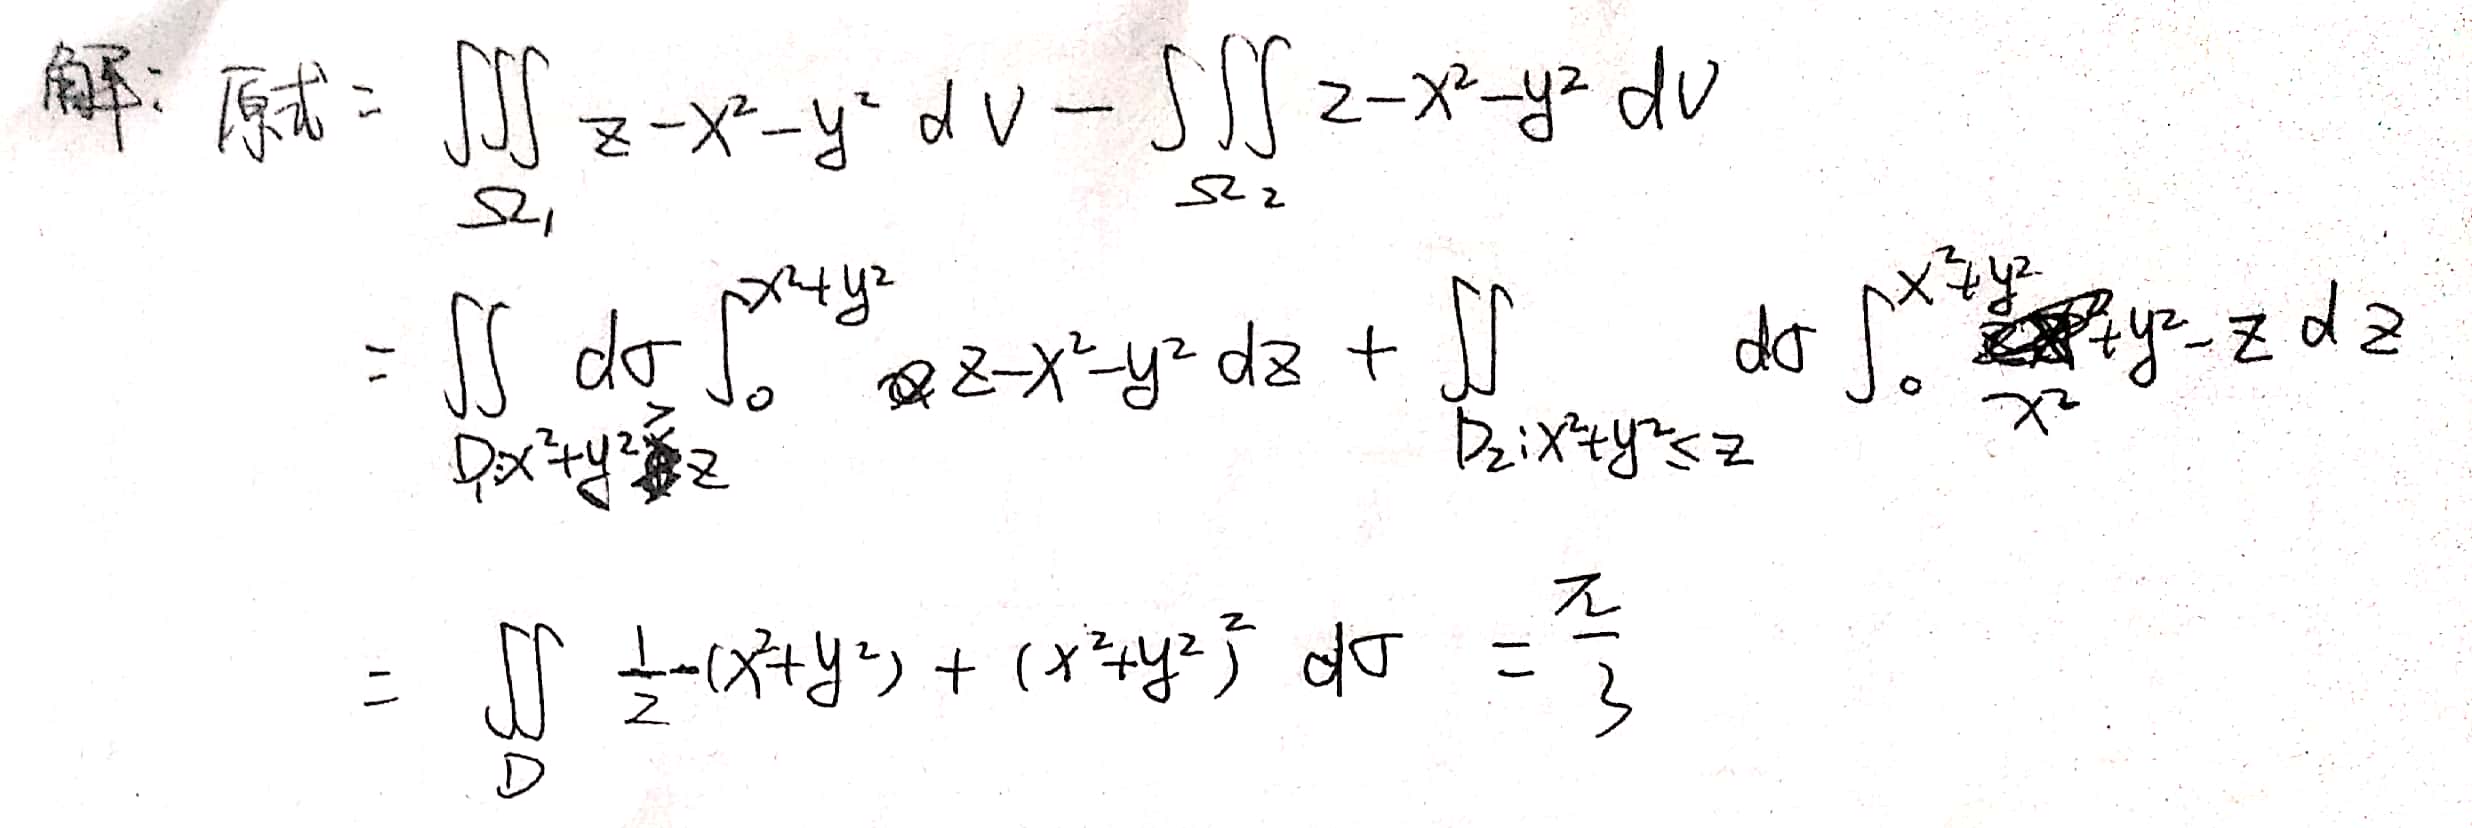 解: 原式 = ∭_{Ω₁} z-x²-y² dV - ∭_{Ω₂} z-x²-y² dV
= ∬_{D₁:x²+y²≥z} dσ ∫₀^{x²+y²} z-x²-y² dz + ∬_{D₂:x²+y²≤z} dσ ∫₀^{x²+y²} x²+y²-z dz
= ∬_D 1/2-(x²+y²)+(x²+y²)² dσ = π/3